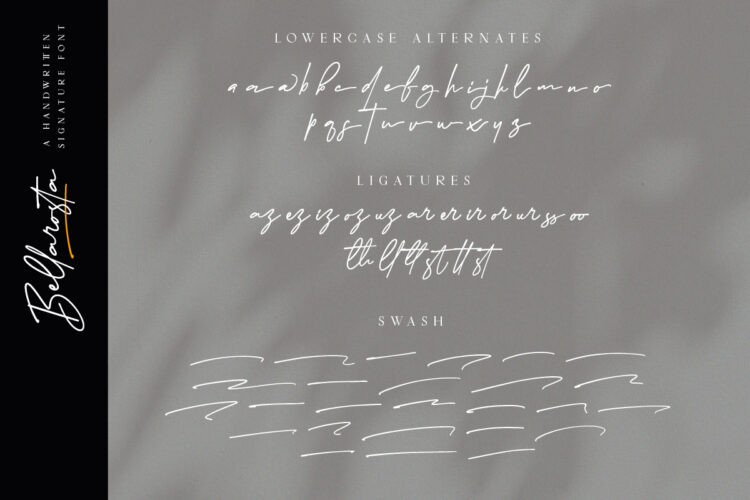 A HANDWRITTEN
SIGNATURE FONT
Bellarosta
LOWERCASE ALTERNATES
a a a b b c d e f g h i j h l m n o
p q s t u v w x y z
LIGATURES
az ez iz oz uz ar er ir or ur ss oo
th lf tt st tt st
SWASH